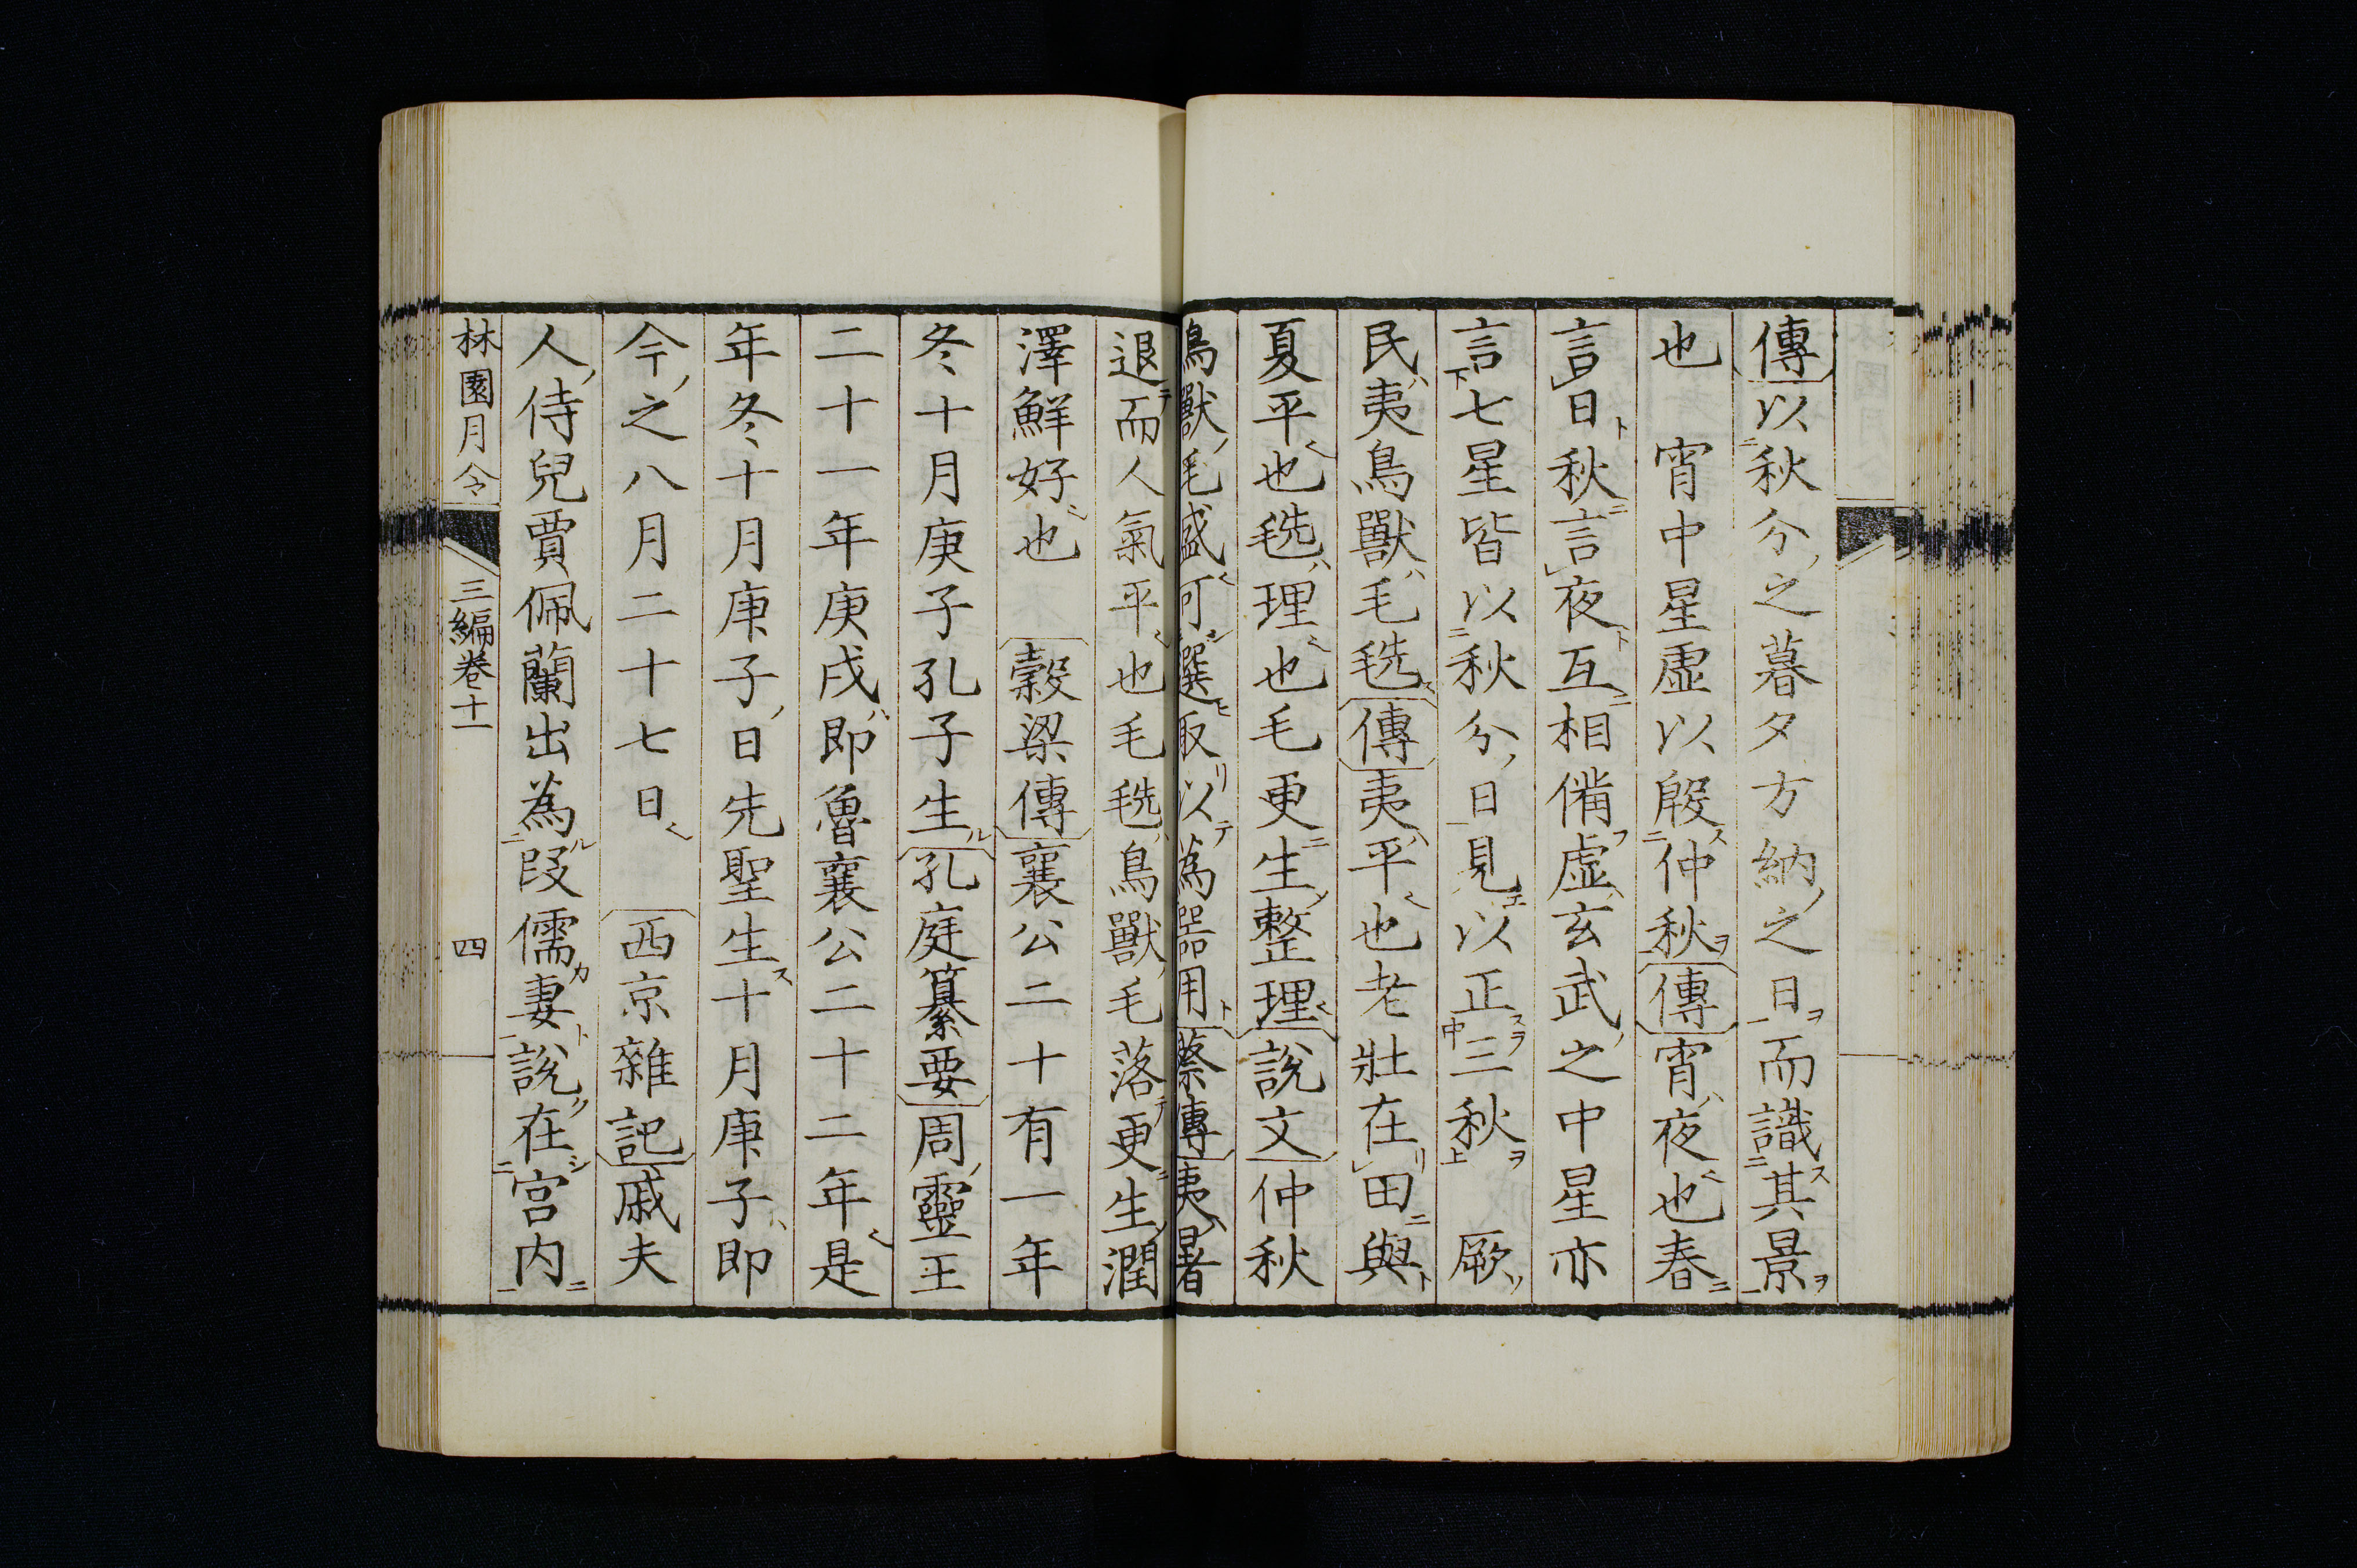 傳以秋分之暮夕方納之日而識其景
也　宵中星虛以殷仲秋傳宵夜也春
言日秋言夜互相備虛玄武之中星亦
言七星皆以秋分日見以正三秋　厥
民夷鳥獸毛毨傳夷平也老壯在田與
夏平也毨理也毛更生整理說文仲秋
鳥獸毛盛可選取以為器用蔡傳夷暑
退而人氣平也毛毨鳥獸毛落更生潤
澤鮮好也　穀梁傳襄公二十有一年
冬十月庚子孔子生孔庭纂要周靈王
二十一年庚戌即魯襄公二十二年是
年冬十月庚子日先聖生十月庚子即
今之八月二十七日　西京雜記戚夫
人侍兒賈佩蘭出為段儒妻說在宮内
林園月令　三編卷十一　四